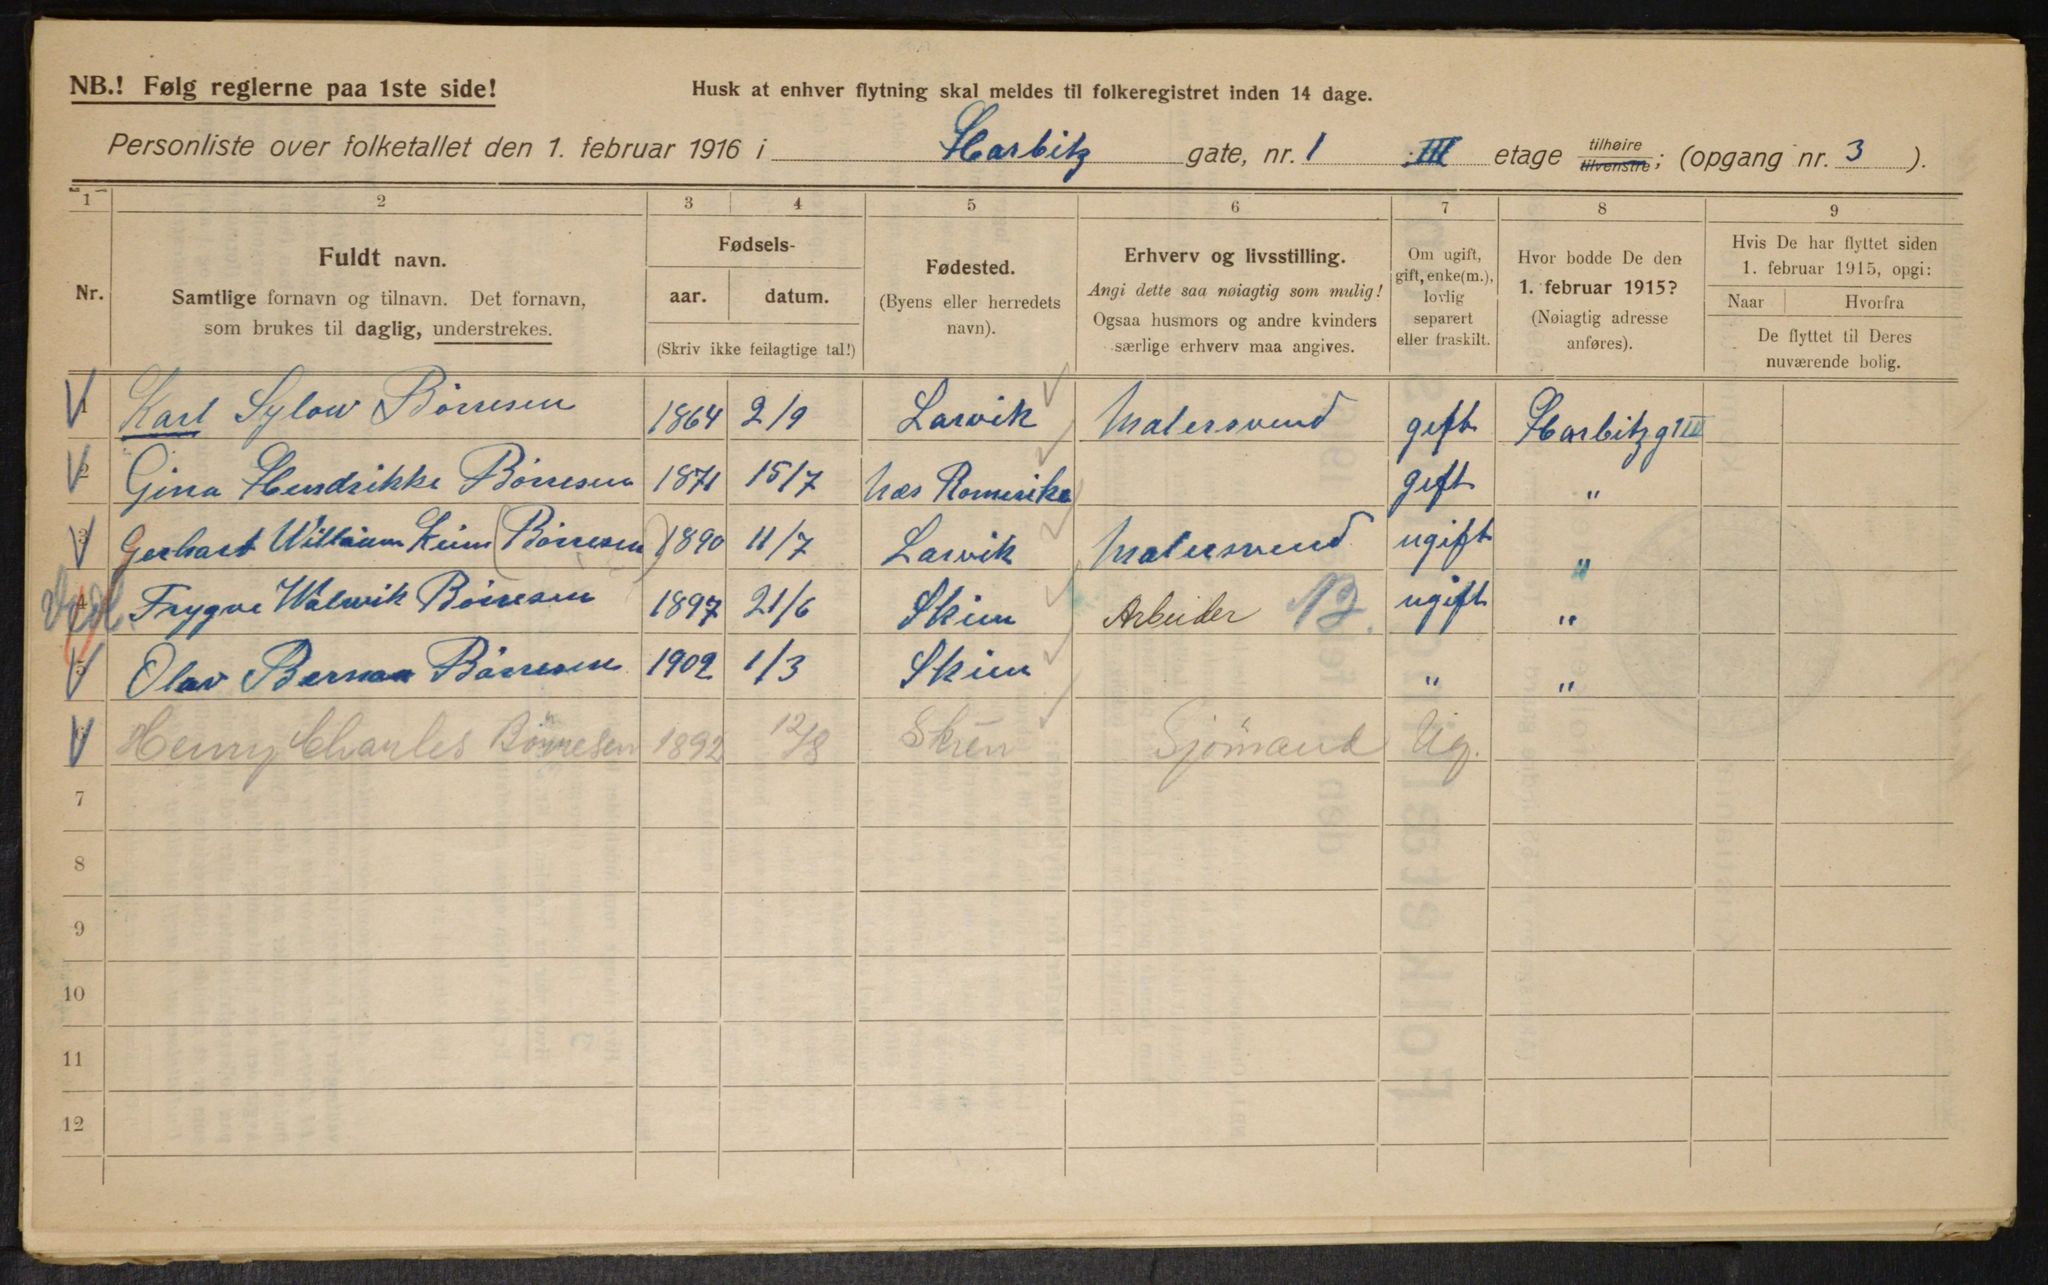 NB.! Følg reglerne paa 1ste side!
Husk at enhver flytning skal meldes til folkeregistret inden 14 dage.
Personliste over folketallet den 1. februar 1916 i Harbitz gate, nr. 1 III etage tilhøire tilvenstre; (opgang nr. 3 ).
1 2 3 4 5 6 7 8 9
Nr.
Fuldt navn.
Samtlige fornavn og tilnavn. Det fornavn,
som brukes til daglig, understrekes.
Fødsels-
aar. datum.
(Skriv ikke feilagtige tal!)
Fødested.
(Byens eller herredets
navn).
Erhverv og livsstilling.
Angi dette saa nøiagtig som mulig!
Ogsaa husmors og andre kvinders
særlige erhverv maa angives.
Om ugift,
gift, enke(m.),
lovlig
separert
eller fraskilt.
Hvor bodde De den
1. februar 1915?
(Nøiagtig adresse
anføres).
Hvis De har flyttet siden
1. februar 1915, opgi:
Naar Hvorfra
De flyttet til Deres
nuværende bolig.
1 Karl Sylow Börresen 1864 2/9 Larvik Malersvend gift Harbitzg 1 III
2 Gina Hendrikke Börresen 1871 15/7 Næs Romerike gift "
3 Gerhart William (Börresen) 1890 11/7 Larvik Malersvend ugift "
4 Trygve Walwik Börresen 1897 21/6 Skien Arbeider 12 ugift "
5 Olav Börresen 1902 1/3 Skien " "
6 Henry Charles Börresen 1892 12/8 Skien Sjömand Ug.
7
8
9
10
11
12